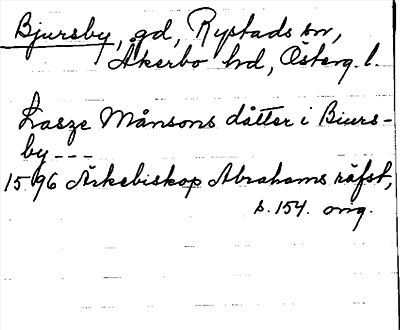 Bjursby, gd, Rystads sn,
Åkerbo hd, Österg. l.
Lasze Månsons dåtter i Biurs-
by - - -
1596 Ärkebiskop Abrahams räfst,
s. 154. orig.